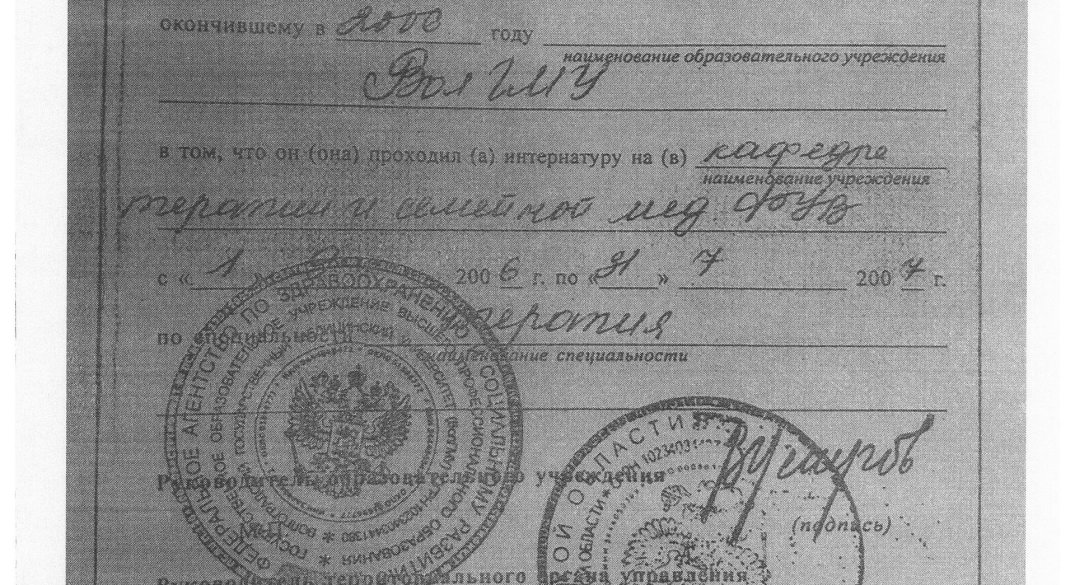 окончившему в 2000 году
наименование образовательного учреждения
ВолГМУ
в том, что он (она) проходил (а) интернатуру на (в) кафедре
наименование учреждения
терапии и семейной мед. ФУВ
с «1» 2006 г. по «31» 7 2007 г.
по специальности терапия
наименование специальности
ФЕДЕРАЛЬНОЕ АГЕНТСТВО ПО ЗДРАВООХРАНЕНИЮ И СОЦИАЛЬНОМУ РАЗВИТИЮ
УЧРЕЖДЕНИЕ ВЫСШЕГО ПРОФЕССИОНАЛЬНОГО ОБРАЗОВАНИЯ
МЕДИЦИНСКИЙ УНИВЕРСИТЕТ
ОЙ ОБЛАСТИ
Руководитель образовательного учреждения
(подпись)
Руководитель территориального органа управления